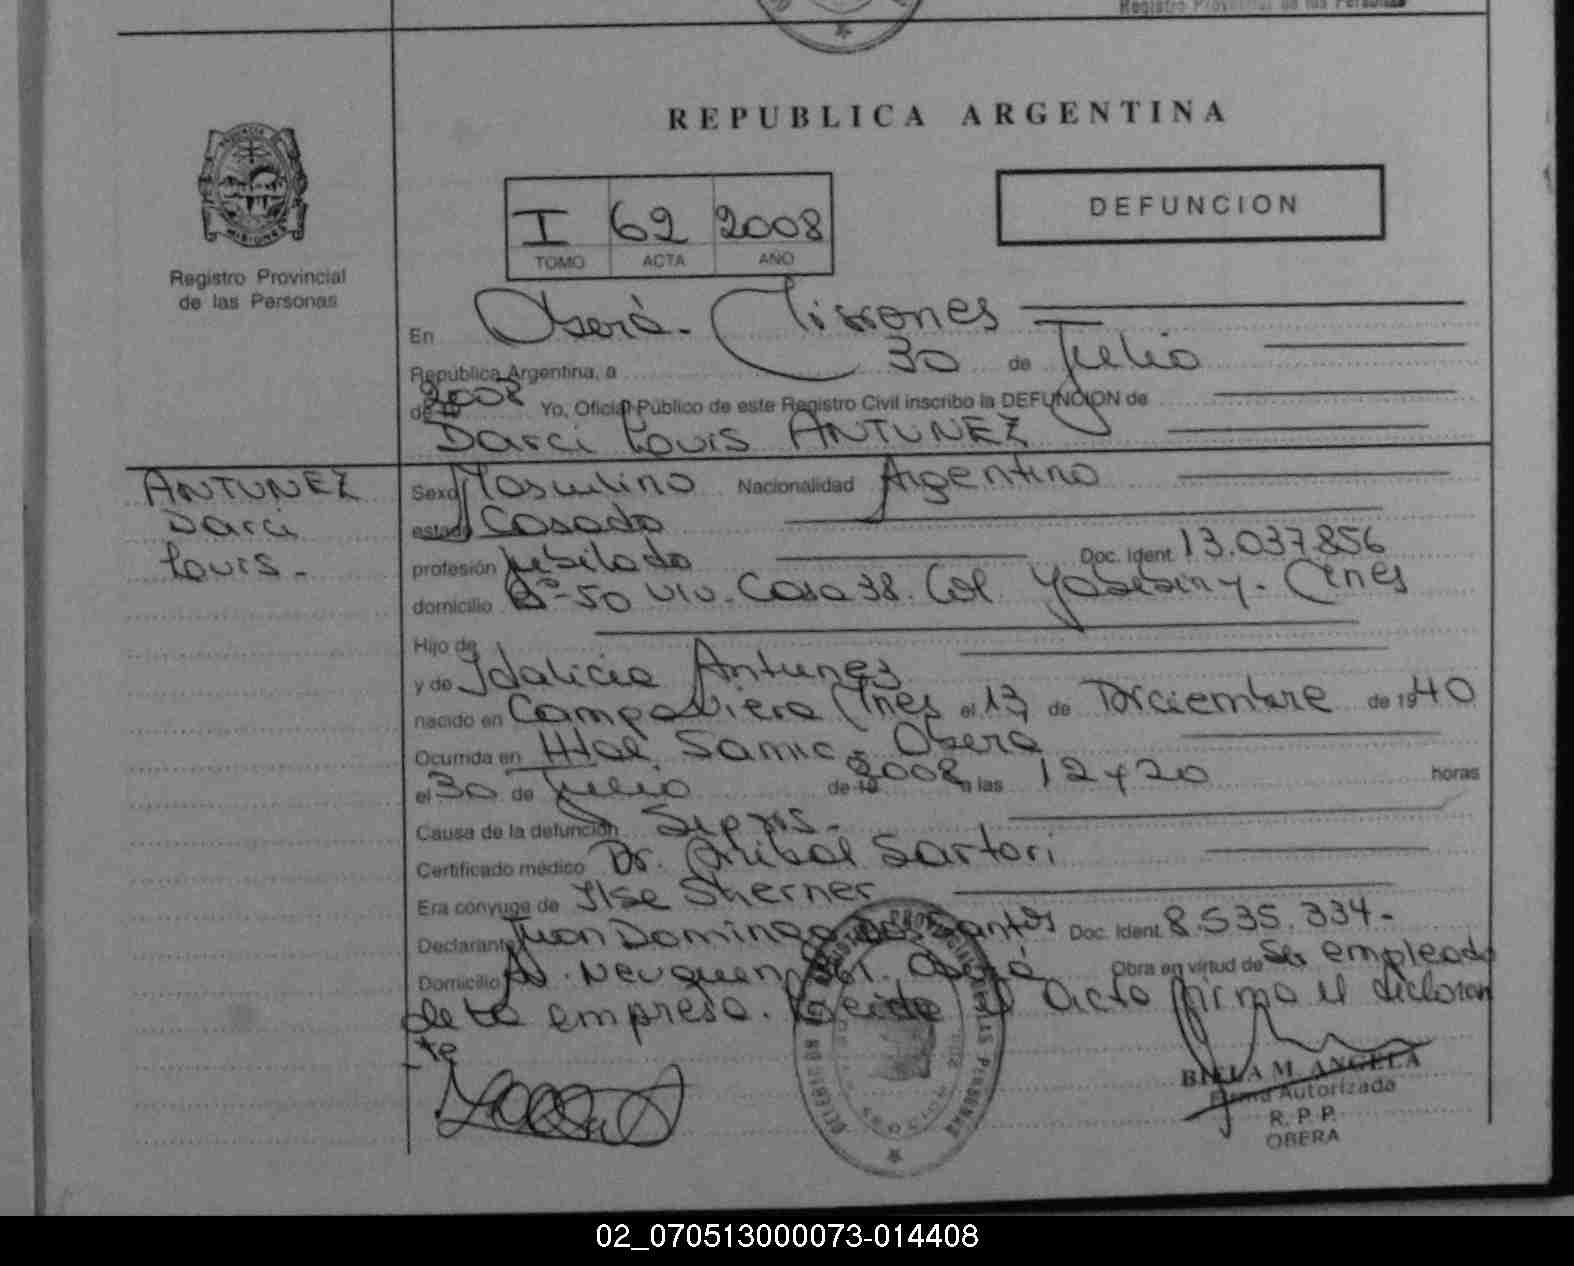 Registro Provincial de las Personas
REPUBLICA ARGENTINA
MISIONES
Registro Provincial
de las Personas
I 62 2008
TOMO ACTA AÑO
DEFUNCION
En Oberá - Misiones
República Argentina, a 30 de Julio
de 19 2008 Yo, Oficial Público de este Registro Civil inscribo la DEFUNCION de
Darci Louis ANTUNEZ
ANTUNEZ
Darci
Louis.-
Sexo Masculino Nacionalidad Argentino
estado Casado
profesión Jubilado Doc. Ident. 13.037.856
domicilio Bº 50 Viv. Casa 38. Col. Yabebiry. Mnes
Hijo de
y de Idalicia Antunes
nacido en Campo Viera Mnes el 13 de Diciembre de 1940
Ocurrida en Htal Samic - Oberá
el 30 de Julio de 19 2008 a las 12 y 20 horas
Causa de la defunción Sepsis.-
Certificado médico Dr. Anibal Sartori
Era cónyuge de Ilse Sherner
Declarante Juan Domingo Dos Santos Doc. Ident. 8.535.334-
Domicilio Av. Neuquen Oberá Obra en virtud de Ser empleado
de la empresa. Leida el acta firma el declaran
te
BIELA M. ANGELA
Firma Autorizada
R. P. P.
OBERA
02_070513000073-014408